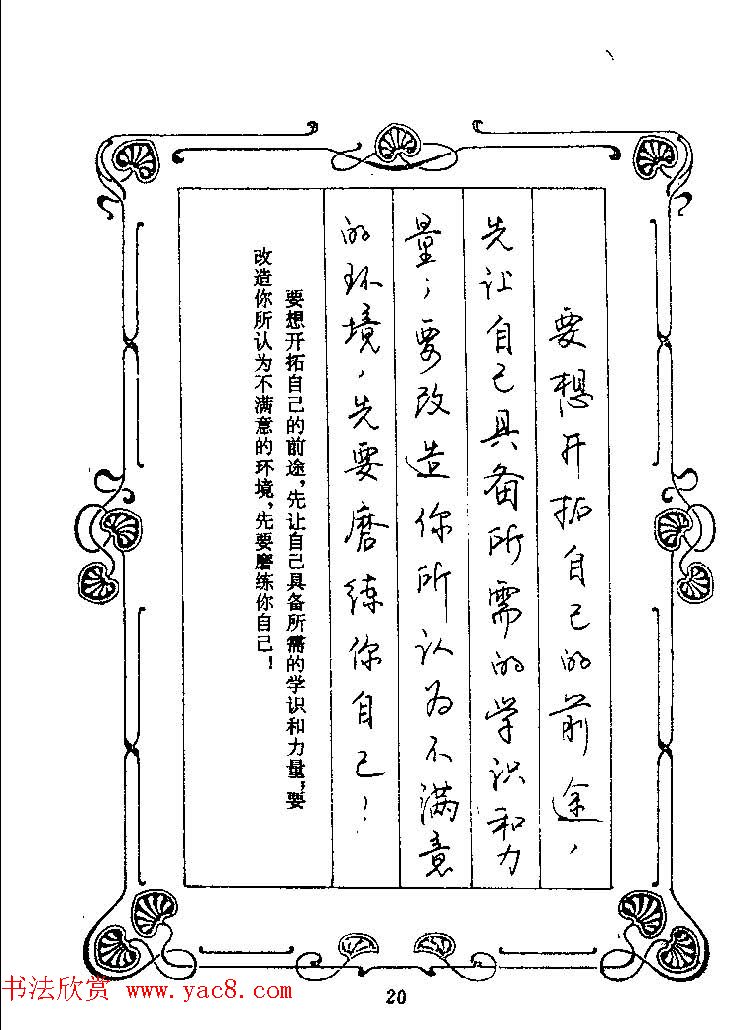 要想开拓自己的前途，
先让自己具备所需的学识和力
量；要改造你所认为不满意
的环境，先要磨练你自己！
要想开拓自己的前途，先让自己具备所需的学识和力量，要
改造你所认为不满意的环境，先要磨练你自己！
书法欣赏 www.yac8.com
20